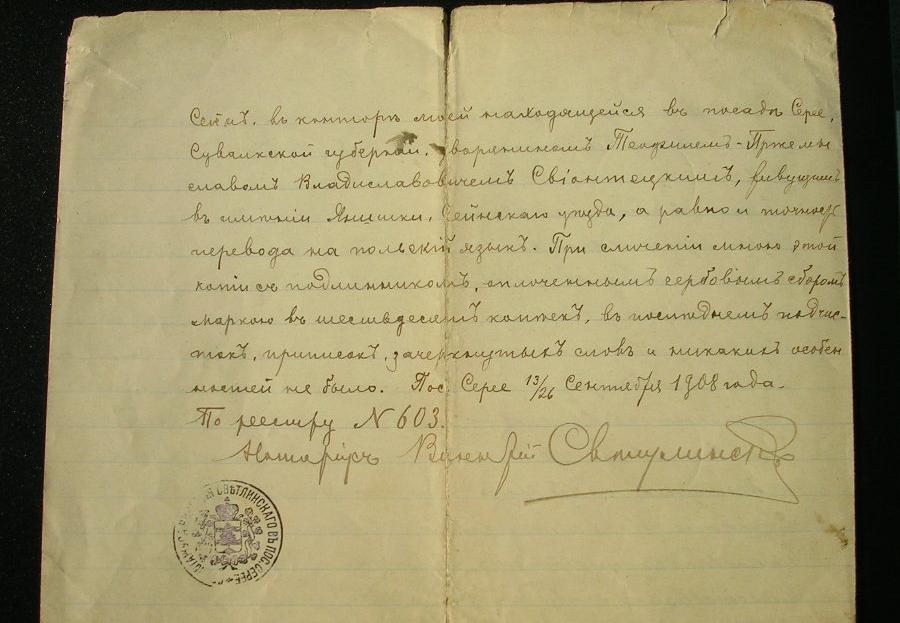 Сеймъ, въ конторѣ моей находящейся въ посадѣ Серее,
Сувалкской губерніи, дворяниномъ Теофилемъ-Пржемы
славомъ Владиславовичемъ Свіонтецкимъ, живущимъ
въ имѣніи Янишки, Сейнскаго уѣзда, а равно и точность
перевода на польскій языкъ. При сличеніи мною этой
копіи съ подлинникомъ, оплоченнымъ гербовымъ сборомъ
маркою въ шестьдесятъ копѣекъ, въ послѣднемъ подчис-
токъ, приписокъ, зачеркнутыхъ словъ и никакихъ особен
ностей не было. Пос. Серее 13/26 Сентября 1908 года.
По реестру N 603.
Нотаріусъ Свѣтлинскій
СВѢТЛИНСКАГО ВЪ ПОС. СЕРЕЕ